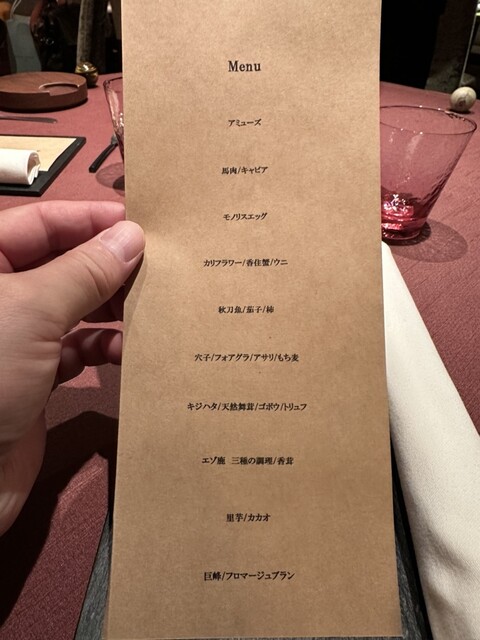 Menu
アミューズ
馬肉/キャビア
モノリスエッグ
カリフラワー/香住蟹/ウニ
秋刀魚/茄子/柿
穴子/フォアグラ/アサリ/もち麦
キジハタ/天然舞茸/ゴボウ/トリュフ
エゾ鹿 三種の調理/香茸
里芋/カカオ
巨峰/フロマージュブラン